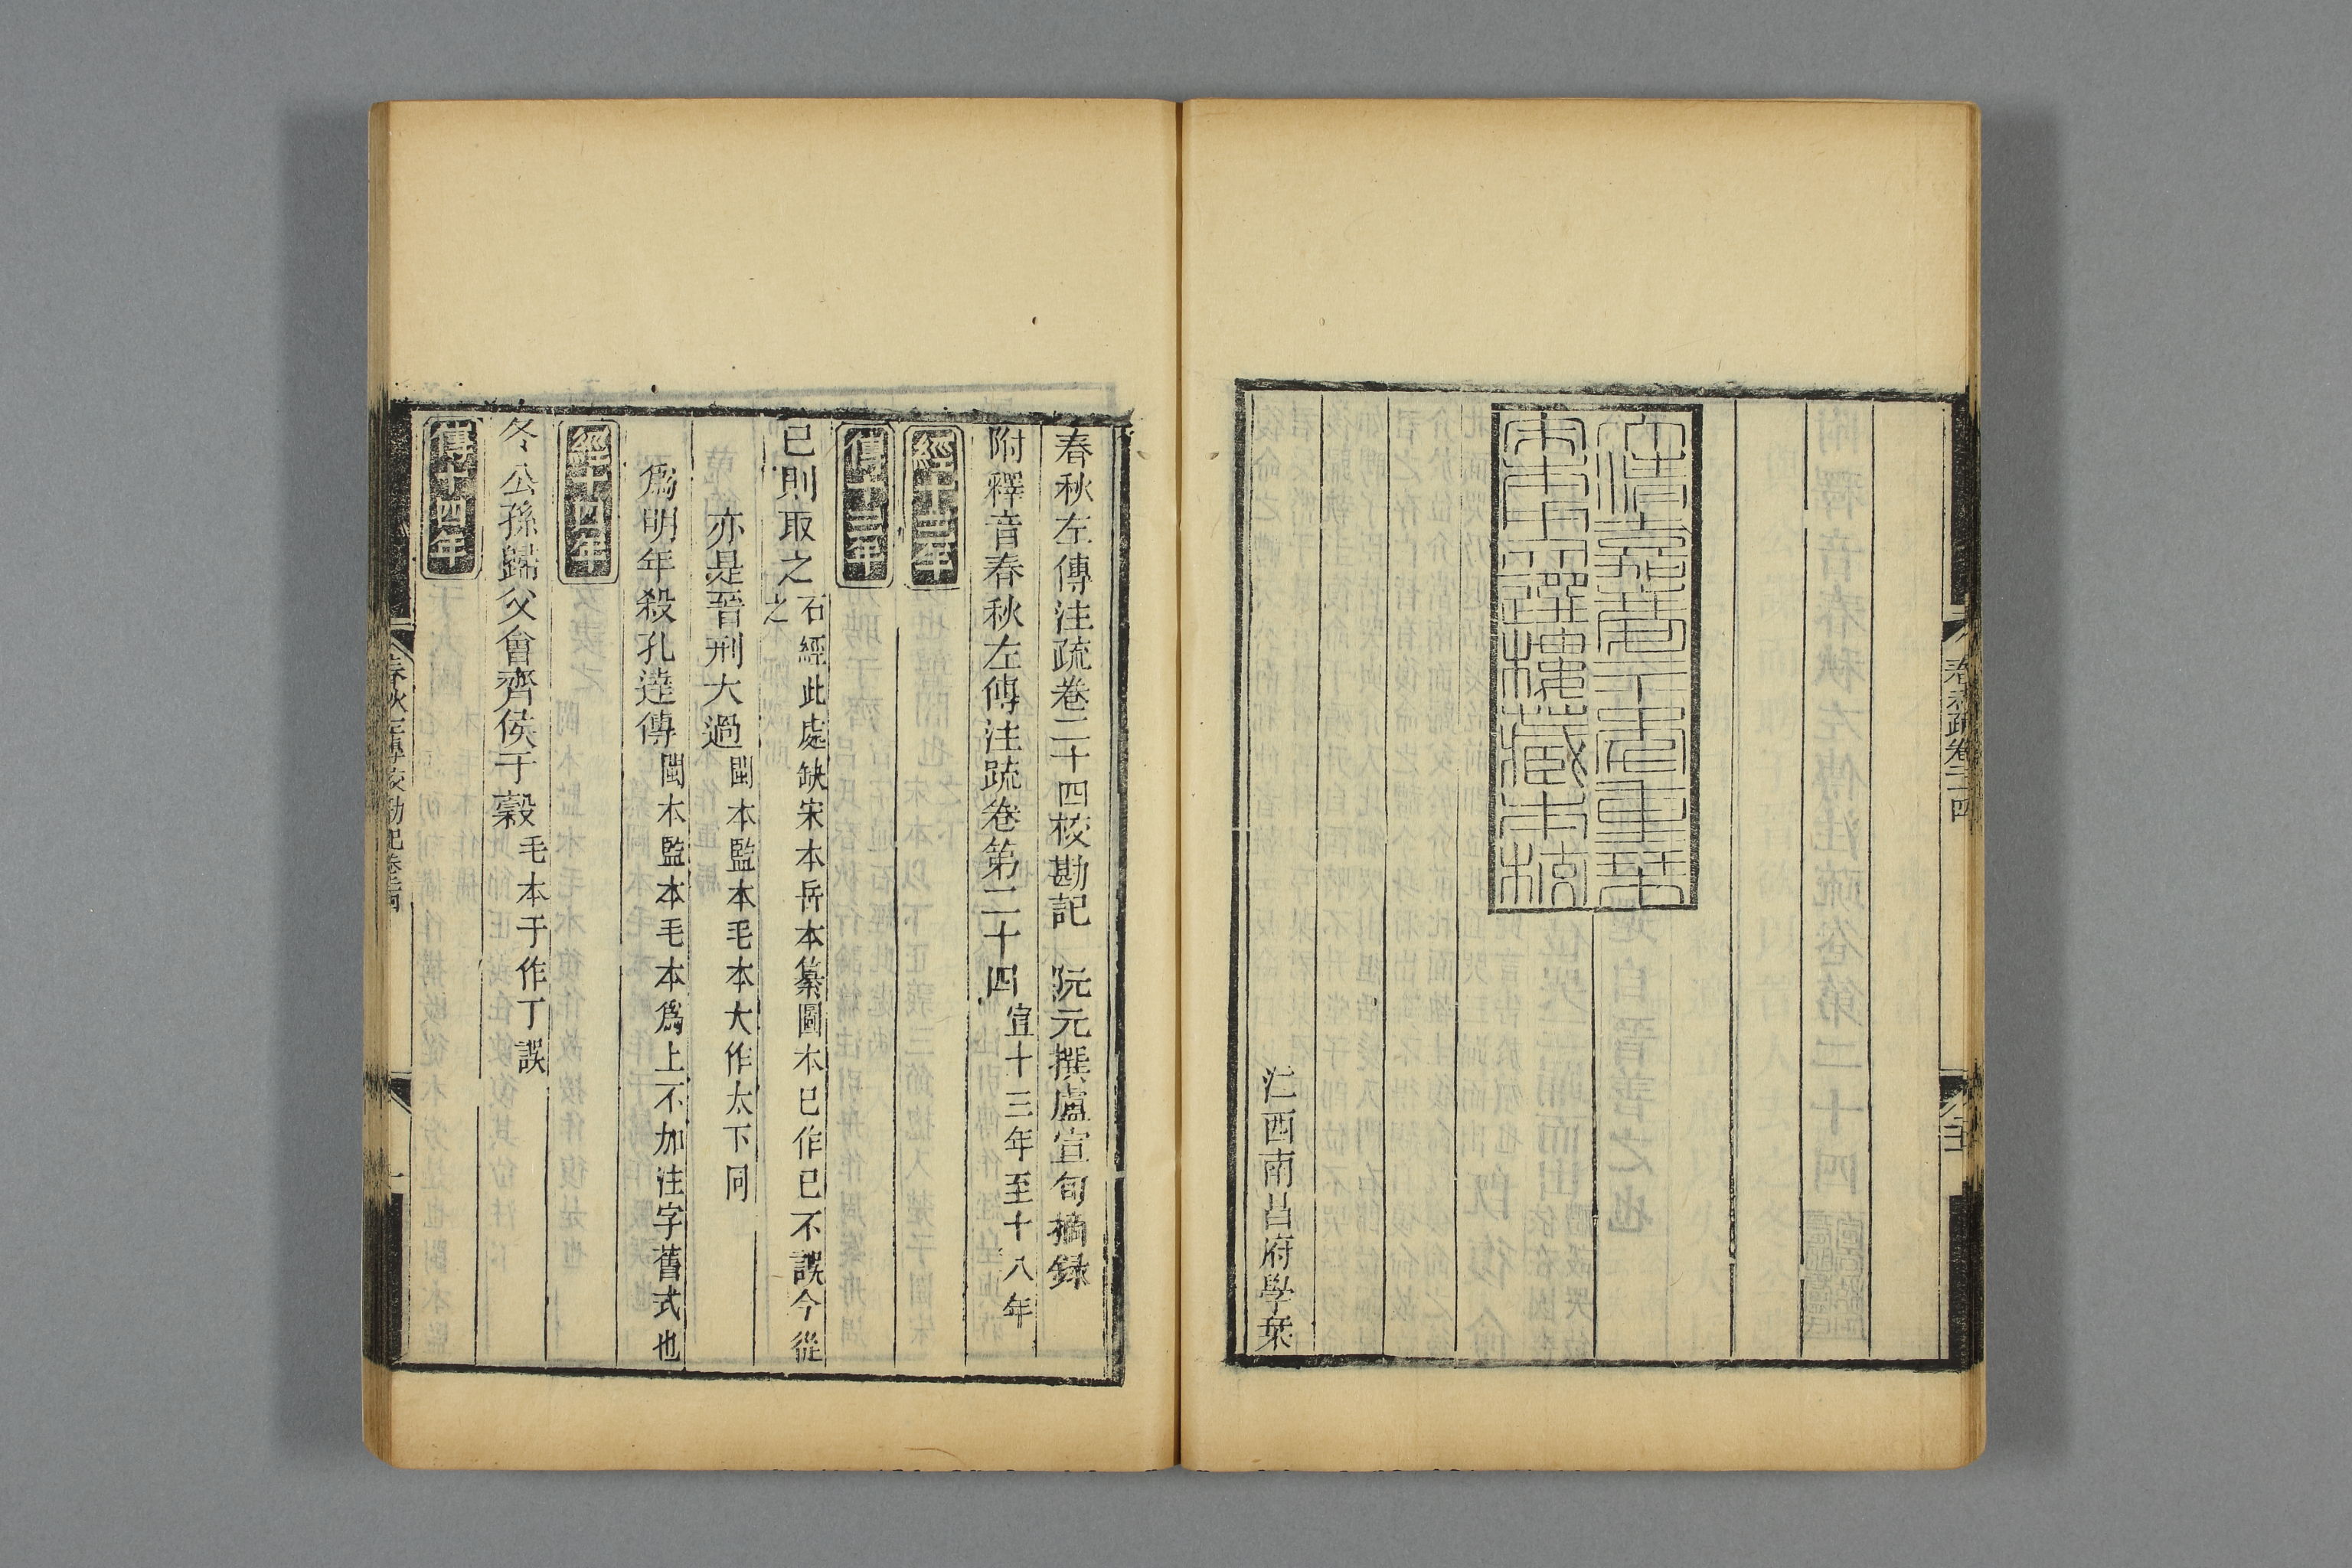 春秋疏卷二十四
大清嘉慶二十年重栞
宋本用文選樓藏本校
江西南昌府學栞
春秋左傳注疏卷二十四校勘記　阮元撰盧宣旬摘録
附釋音春秋左傳注疏卷第二十四宣十三年至十八年
經十三年
傳十三年
已則取之石經此處缺宋本岳本纂圖本已作己不誤今從
之
亦是晉刑大過閩本監本毛本大作太下同
爲明年殺孔達傳閩本監本毛本爲上不加注字舊式也
經十四年
冬公孫歸父會齊侯于穀毛本于作丁誤
傳十四年
春秋左傳校勘記卷二十四
一